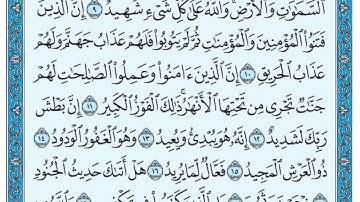 ٱلسَّمَٰوَٰتِ وَٱلْأَرْضِ وَٱللَّهُ عَلَىٰ كُلِّ شَىْءٍ شَهِيدٌ ٩ إِنَّ ٱلَّذِينَ
فَتَنُوا۟ ٱلْمُؤْمِنِينَ وَٱلْمُؤْمِنَٰتِ ثُمَّ لَمْ يَتُوبُوا۟ فَلَهُمْ عَذَابُ جَهَنَّمَ وَلَهُمْ
عَذَابُ ٱلْحَرِيقِ ١٠ إِنَّ ٱلَّذِينَ ءَامَنُوا۟ وَعَمِلُوا۟ ٱلصَّٰلِحَٰتِ لَهُمْ
جَنَّٰتٌ تَجْرِى مِن تَحْتِهَا ٱلْأَنْهَٰرُ ذَٰلِكَ ٱلْفَوْزُ ٱلْكَبِيرُ ١١ إِنَّ بَطْشَ
رَبِّكَ لَشَدِيدٌ ١٢ إِنَّهُۥ هُوَ يُبْدِئُ وَيُعِيدُ ١٣ وَهُوَ ٱلْغَفُورُ ٱلْوَدُودُ ١٤
ذُو ٱلْعَرْشِ ٱلْمَجِيدُ ١٥ فَعَّالٌ لِّمَا يُرِيدُ ١٦ هَلْ أَتَىٰكَ حَدِيثُ ٱلْجُنُودِ